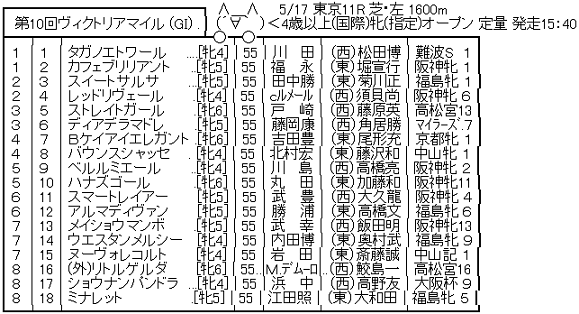 第10回ヴィクトリアマイル (GI).. ( ´∀` ) ＜4歳以上(国際)牝(指定)オープン 定量 発走15：40
5/17 東京11R 芝・左 1600m
1 1 タガノエトワール ...[牝4] 55 川 田 (西)松田博 難波S 1
1 2 カフェブリリアント [牝5] 55 福 永 (東)堀宣行 阪神牝 1
2 3 スイートサルサ ...[牝5] 55 田中勝 (東)菊川正 福島牝 1
2 4 レッドリヴェール ...[牝4] 55 c/ルメール (西)須貝尚 阪神牝 6
3 5 ストレイトガール [牝6] 55 戸 崎 (西)藤原英 高松宮13
3 6 ディアデラマドレ [牝5] 55 藤岡康 (西)角居勝 マイラーズ.7
4 7 Bケイアイエレガント [牝6] 55 吉田豊 (東)尾形充 京都牝 1
4 8 バウンスシャッセ [牝4] 55 北村宏 (東)藤沢和 中山牝 1
5 9 ベルルミエール ...[牝4] 55 川 島 (西)高橋亮 阪神牝 2
5 10 ハナズゴール ...[牝6] 55 丸 田 (東)加藤和 阪神牝11
6 11 スマートレイアー [牝5] 55 武 豊 (西)大久龍 阪神牝 4
6 12 アルマディヴァン [牝5] 55 勝 浦 (東)高橋文 福島牝 6
7 13 メイショウマンボ [牝5] 55 武 幸 (西)飯田明 阪神牝13
7 14 ウエスタンメルシー [牝4] 55 内田博 (東)奥村武 福島牝 9
7 15 ヌーヴォレコルト [牝4] 55 岩 田 (東)斎藤誠 中山記 1
8 16 (外)リトルゲルダ [牝6] 55... M.デムーロ (西)鮫島一 高松宮16
8 17 ショウナンパンドラ [牝4] 55 浜 中 (西)高野友 大阪杯 9
8 18 ミナレット ...[牝5] 55 江田照 (東)大和田 福島牝 5